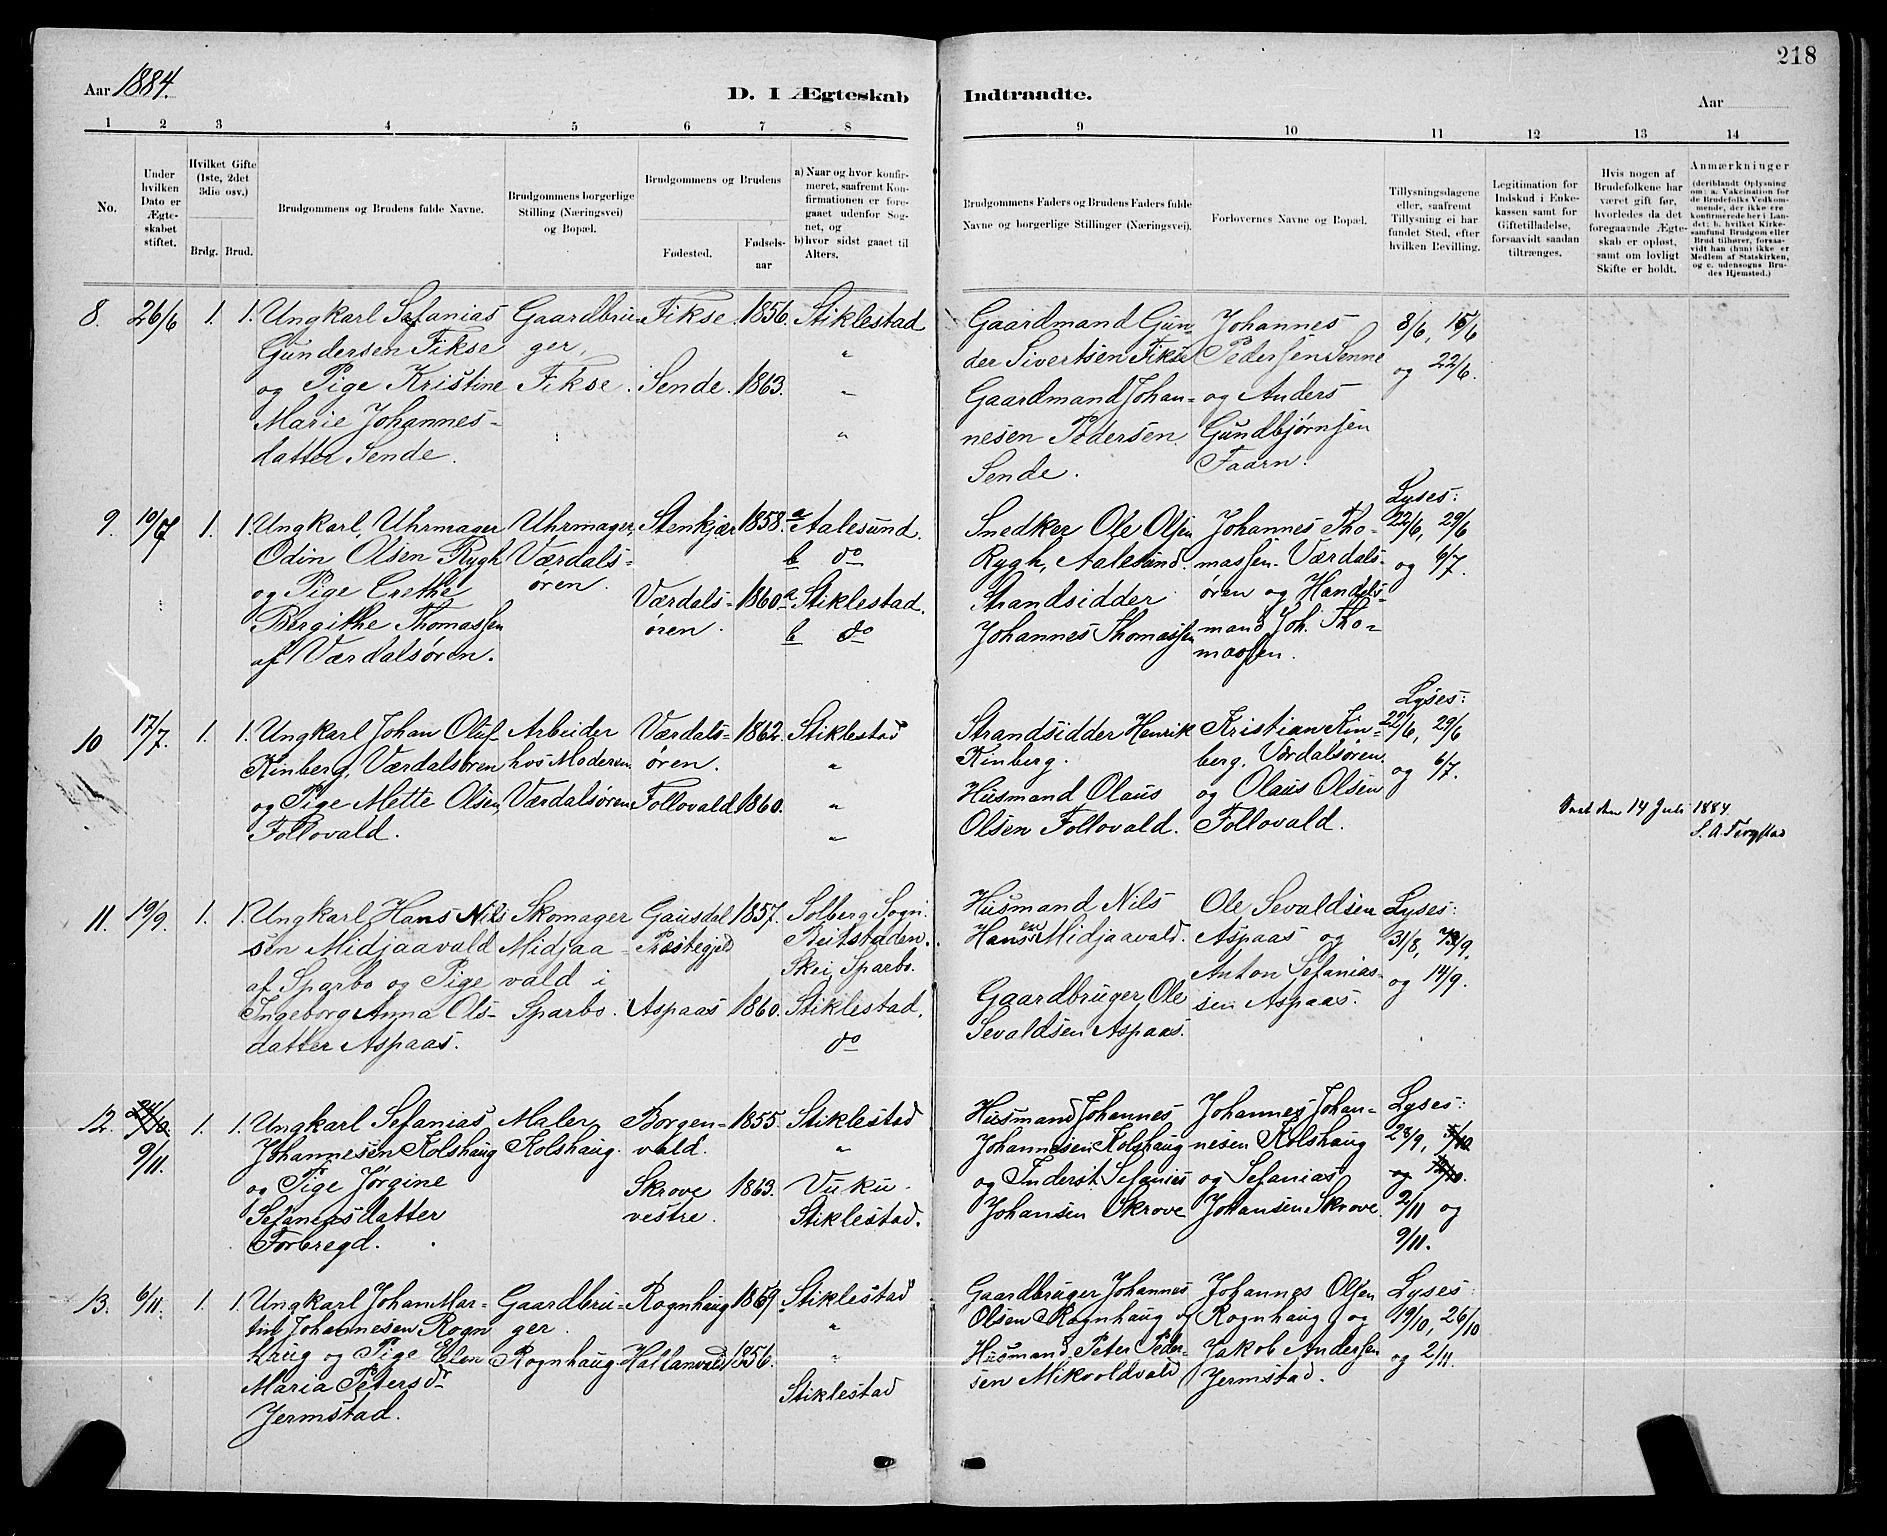 218
Aar 1884.
D. I Ægteskab Indtraadte.
Aar
1 2 3 4 5 6 7 8 9 10 11 12 13 14
No.
Under hvilken Dato er Ægteskabet stiftet.
Hvilket Gifte (1ste, 2det 3die osv.)
Brdg. Brud.
Brudgommens og Brudens fulde Navne.
Brudgommens borgerlige Stilling (Næringsvei) og Bopæl.
Brudgommens og Brudens
Fødested.
Fødsels-aar
a) Naar og hvor konfirmeret, saafremt Konfirmationen er foregaaet udenfor Sognet, og
b) hvor sidst gaaet til Alters.
Brudgommens Faders og Brudens Faders fulde Navne og borgerlige Stillinger (Næringsvei).
Forlovernes Navne og Bopæl.
Tillysningsdagene eller, saafremt Tillysning ei har fundet Sted, efter hvilken Bevilling.
Legitimation for Indskud i Enkekassen samt for Giftetilladelse, forsaavidt saadan tiltrænges.
Hvis nogen af Brudefolkene har været gift før, hvorledes da det foregaaende Ægteskab er opløst, samt om lovligt Skifte er holdt.
Anmærkninger (deriblandt Oplysning om: a. Vakcination for de Brudefolks Vedkommende, der ikke ere konfirmerede her i Landet; b. hvilket Kirkesamfund Brudgom eller Brud tilhører, forsaavidt han (hun) ikke er Medlem af Statskirken, og c. udensogns Brudes Hjemsted.)
8. 26/6 1. 1.
Ungkarl Sefanias
Gundersen Fikse
og Pige Kristine
Marie Johannes-
datter Sende.
Gaardbru-
ger,
Fikse.
Fikse. 1856. Stiklestad
"
Sende. 1863. "
"
Gaardmand Gun-
der Sivertsen Fikse
Gaardmand Johan-
nesen Pedersen
Sende.
Johannes
Pedersen Senne
og Anders
Gundbjørnsen
Faarn.
8/6, 15/6
og 22/6.
9. 10/7 1. 1.
Ungkarl, Uhrmager
Odin Olsen Rygh
og Pige Crethe
Bergithe Thomassen
af Værdalsøren.
Uhrmager,
Værdals-
øren.
Stenkjær 1858. a Aalesund.
b do
Værdals-
øren. 1860. a Stiklestad.
b do
Snedker Ole Olsen
Rygh, Aalesund.
Strandsidder
Johannes Thomassen
Johannes Tho-
massen. Værdals-
øren og Handels-
mand Joh. Tho-
massen.
Lyses:
22/6, 29/6
og 6/7.
10 17/7. 1. 1.
Ungkarl Johan Oluf
Kinberg, Værdalsøren
og Pige Mette Olsen,
Follovald.
Arbeider
hos Moderen
Værdalsøren
Værdals-
øren. 1862. Stiklestad
"
Follovald 1860. "
"
Strandsidder Henrik
Kinberg.
Husmand Olaus
Olsen Follovald.
Kristian Kin-
berg, Værdalsøren
og Olaus Olsen
Follovald.
Lyses:
22/6, 29/6
og 6/7.
14 Juli 1884.
11. 19/9. 1. 1.
Ungkarl Hans Nils
sen Midjaavald
af Sparbo og Pige
Ingeborg Anna Ols-
datter Aspaas.
Skomager
Midjaa
vald i
Sparbo.
Gausdal
Præstegjeld 1857. Solberg Sogn.
Beitstaden.
Skei, Sparbo.
Aspaas 1860. Stiklestad.
do
Husmand Nils
Hansen Midjaavald.
Gaardbruger Ole
Sevaldsen Aspaas.
Ole Sevaldsen
Aspaas og
Anton Sefanias-
sen Aspaas.
Lyses:
31/8, 7/9,
og 14/9.
12. 9/11. 1. 1.
Ungkarl Sefanias
Johannesen Kolshaug
og Pige Jørgine
Sefaniasdatter
Forbregd.
Maler
Kolshaug.
Borgen-
vald. 1855. Stiklestad
"
Skrove
vestre. 1863. Vuku.
Stiklestad.
Husmand Johannes
Johannesen Kolshaug
og Inderst Sefanies
Johansen Skrove
Johannes Johan-
nesen Kolshaug
og Sefanias
Johansen Skrove.
Lyses:
28/9, 5/10
og 12/10.
2/11 og
9/11.
13. 6/11. 1. 1.
Ungkarl Johan Mar-
tin Johannesen Rogn
haug og Pige Elen
Maria Petersdr
Jermstad.
Gaardbru-
ger.
Rognhaug.
Rognhaug 1859 Stiklestad
"
Hallanvald 1856. "
Stiklestad
Gaardbruger Johannes
Olsen Rognhaug og
Husmand Peter Peder-
sen Mikvoldvald
Johannes Olsen
Rognhaug og
Jakob Andersen
Jermstad.
Lyses:
19/10, 26/10
og 2/11.